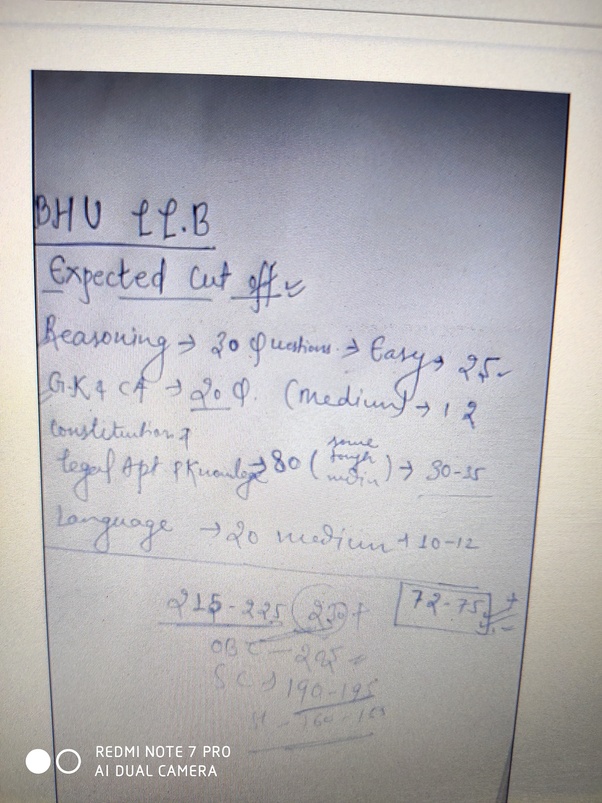 BHU LL.B
Expected Cut off
Reasoning → 30 Questions → Easy → 25
G.K & CA → 20 Q. (medium) → 12
Constitution &
legal Apt & Knowledge → 80 (some tough medium) → 30-35
Language → 20 medium → 10-12
215-225 230+ 72-75
OBC — 205
SC → 190-195
REDMI NOTE 7 PRO
AI DUAL CAMERA